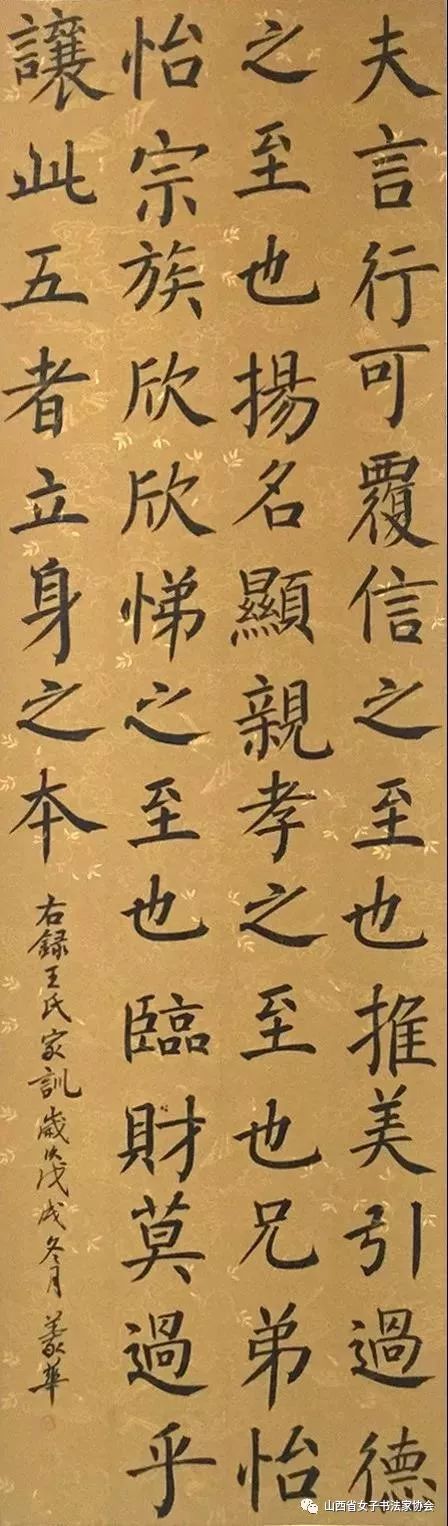 夫言行可覆信之至也推美引過德
之至也揚名顯親孝之至也兄弟怡
怡宗族欣欣悌之至也臨財莫過乎
讓此五者立身之本
右録王氏家訓歲次戊戌冬月
山西省女子书法家协会